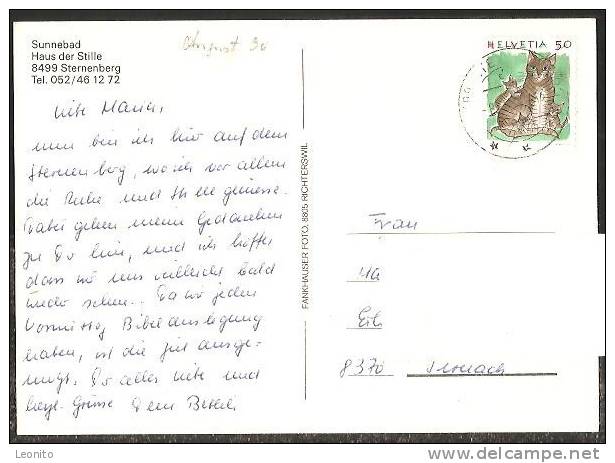 Sunnebad
Haus der Stille
8499 Sternenberg
Tel. 052/46 12 72
August 90
HELVETIA 50
nun bin ich hier auf dem
Sternenberg, wo ich vor allem
die Ruhe und Stille geniesse.
Dabei gehen meine Gedanken
zu Dir hin, und ich hoffe
dass wir uns vielleicht bald
wieder sehen. Da wir jeden
Vormittag Bibelauslegung
haben, ist die Zeit ausge-
Dir alles Liebe und
herzl. Grüsse Dein
FANKHAUSER FOTO, 8805 RICHTERSWIL
Frau
8370 Sirnach
Leonito
delcampe.net